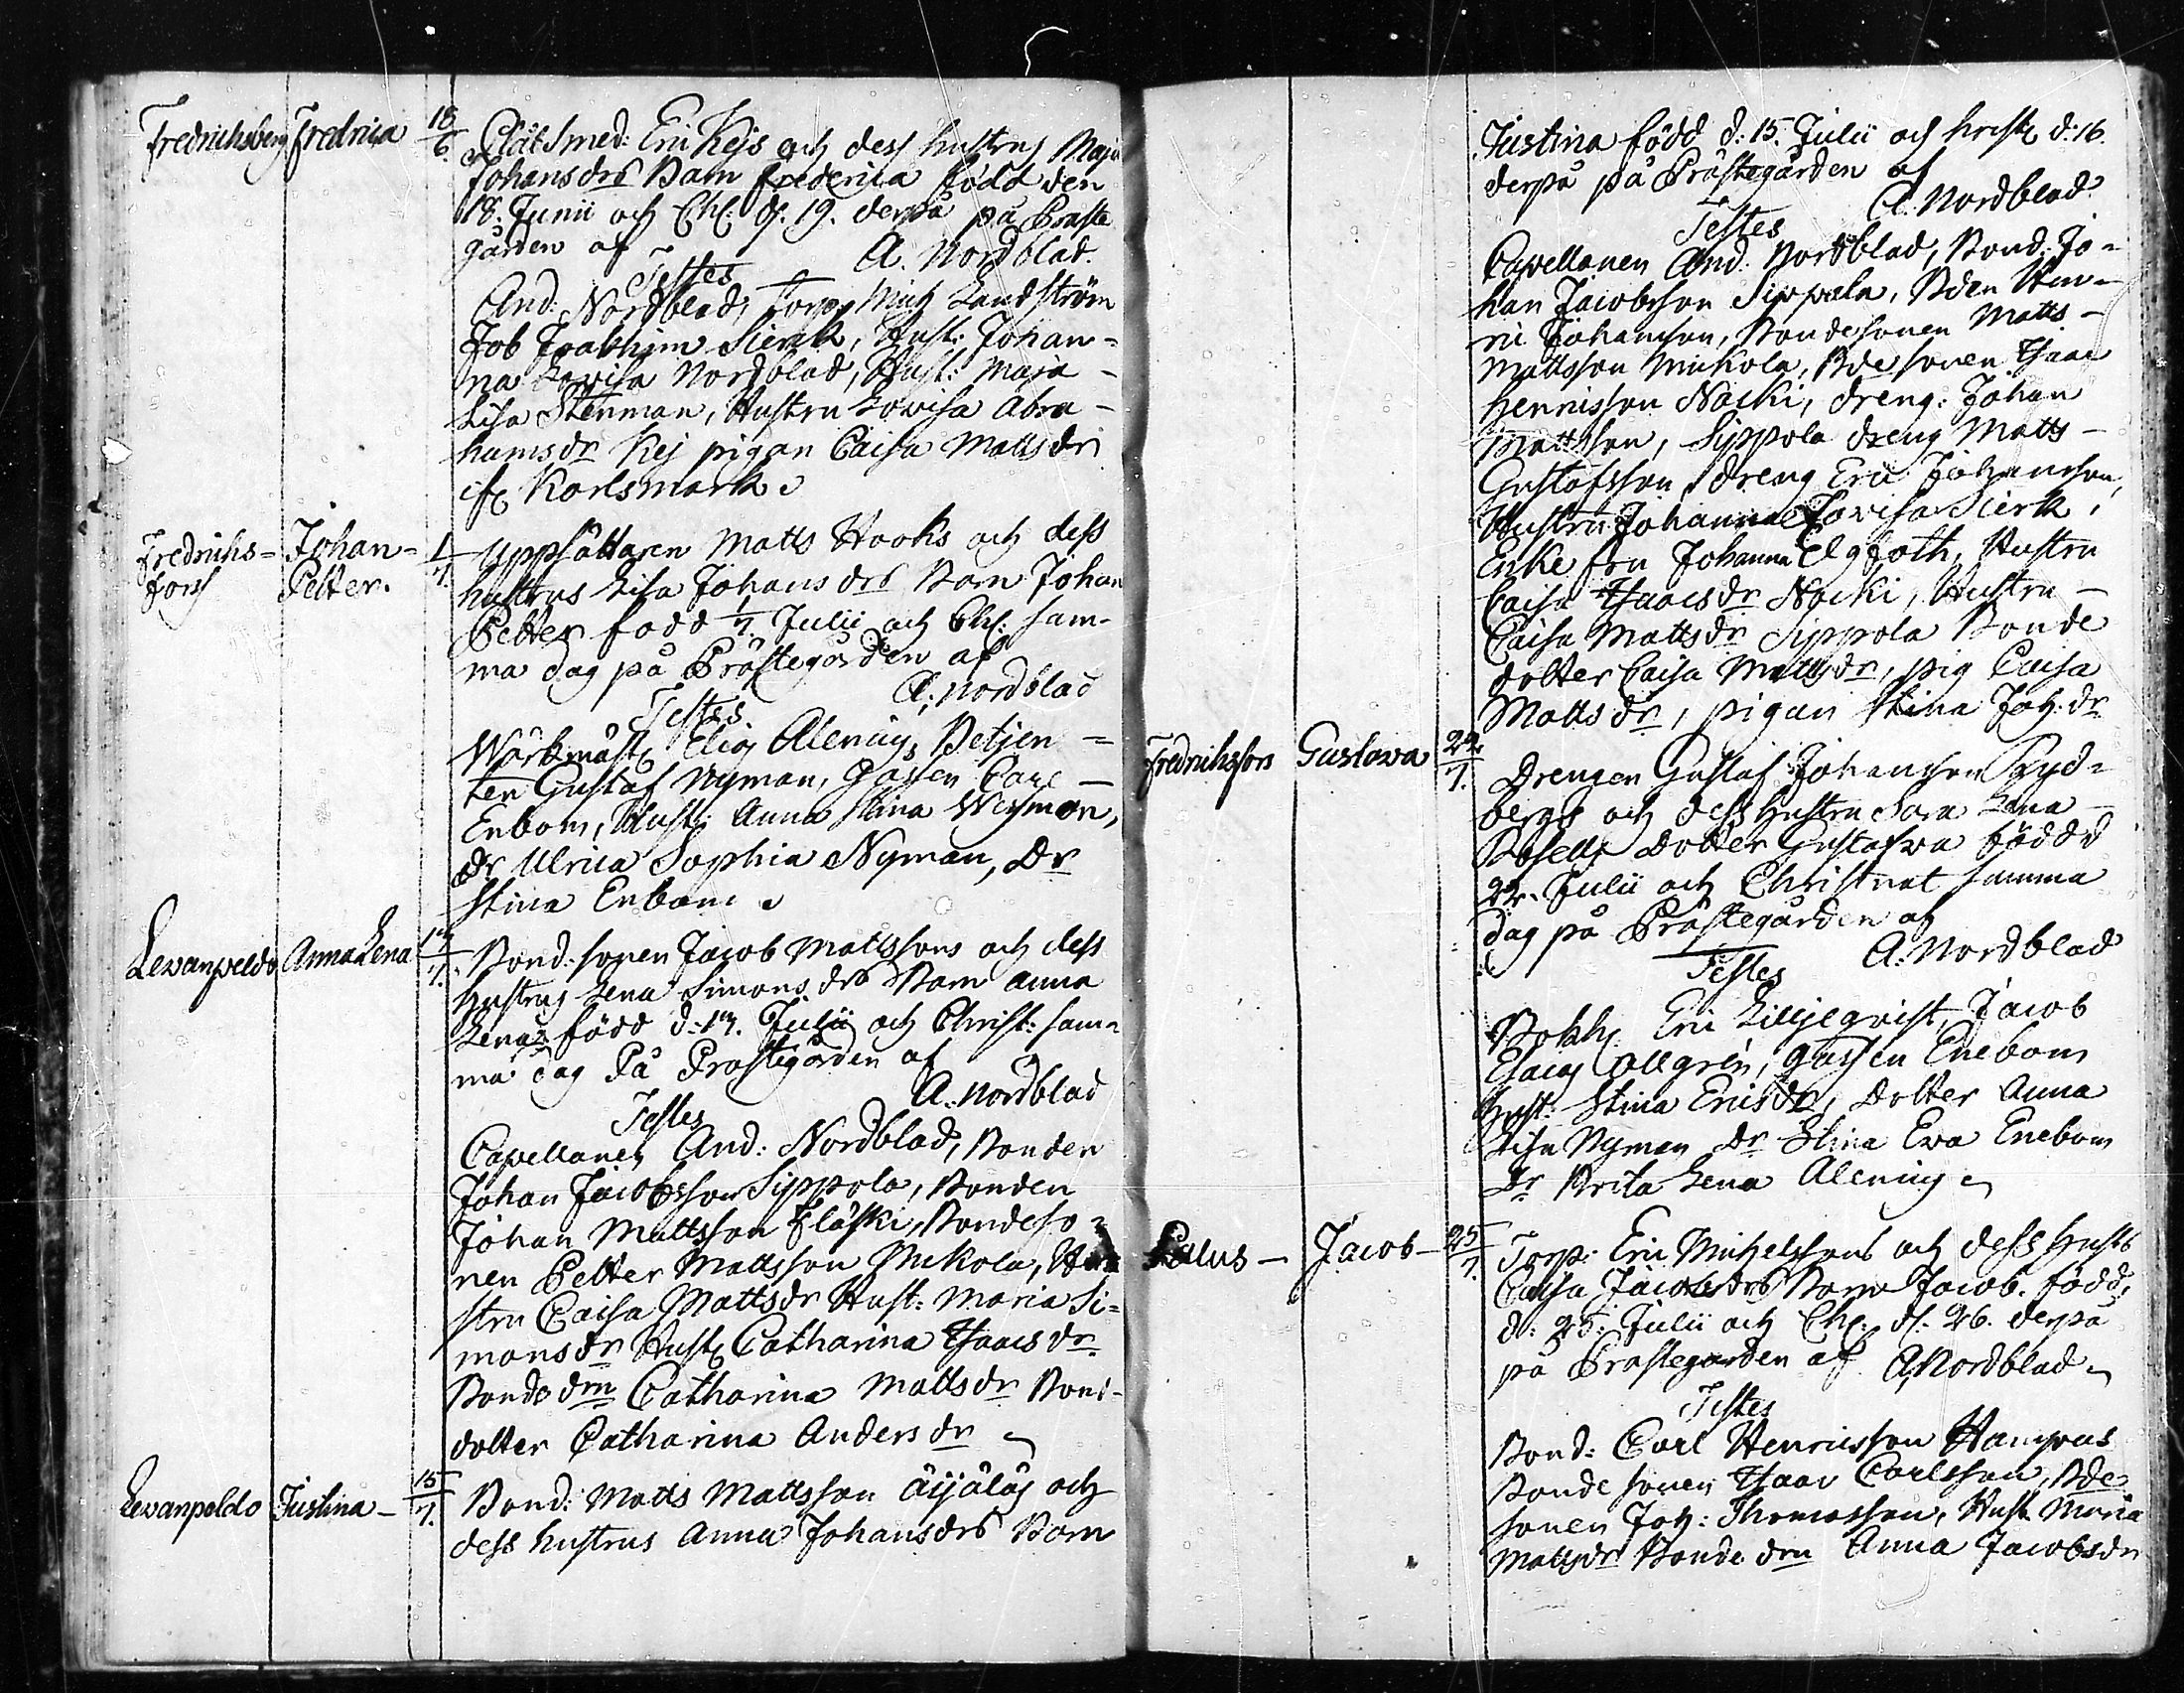 Fredrichsberg Fredrica 18/6 Plåtsmed: Eric Kejs och dess hustrus Maja
Johansdrs Barn Frederica född den
18. Junii och Chr: d. 19. derpå på Präste
gården af A. Nordblad.
Testes
And: Nordblad, Mich Landström
Job Joakhim Sierck, Hust: Johan=
na Lovisa Nordblad, Hust: Maja -
Lisa Stenman, Hustru Lovisa Abra-
hamsdr Kej pigan Caisa Mattsdr
Karlsmark
Fredrichs= Johan= 1/7. Uppsättaren Matts Hooks och dess
fors Petter. hustrus Lisa Johansdrs Barn Johan
Petter född 1/7. Julii och Chr: sam-
ma dag på Prästegården af
A. Nordblad
Testes.
Wärkmäst Elias Alenius, Betjen=
ten Gustaf Nyman, Gossen Carl -
Enbom, Hust: Anna Stina Weyman,
dr Ulrica Sophia Nyman, Dr
Stina Enbom
Lewanpeldo Anna Lena 14/7. Bond: sonen Jacob Mattssons och dess
hustrus Lena Simonsdrs Barn Anna
Lena född d: 14. Julii och Christ: sam=
ma dag På Prästegården af
A. Nordblad
Testes
Capellanen And: Nordblad, Bonden
Johan Jacobsson Sippola, Bonden
Johan Mattsson Bondeso=
nen Petter Mattsson Mickola, Hu
stru Caisa Mattsdr Hust: Maria Si=
monsdr Hust Catharina Isaacsdr
Bondedrn Catharina Mattsdr Bond-
dotter Catharina Andersdr
Lewanpeldo Justina - 15/7. Bond: Matts Mattsson Äijälä och
dess hustrus Anna Johansdrs Barn
Justina född d: 15. Julii och Christ d: 16.
derpå på Prästegården af
A. Nordblad
Testes
Capellanen And. Nordblad, Bond: Jo=
han Jacobsson Sippola, Bden Hen-
ric Johansson, Bondesonen Matts -
Mattsson Mickola, Bdesonen Isaac
Henricsson Nocki, dreng: Johan
Mattsson, Sippola dreng Matts -
Gustafsson, dreng Eric Johansson,
Hustru Johanna Lovisa Sierck,
Enke fru Johanna Elgfoth, Hustru
Caisa Isaacsdr Nocki, Hustru -
Caisa Mattsdr Sippola Bonde
dotter Caisa Mattsdr, pig Caisa
Mattsdr, pigan Stina Joh: dr
Fredrichsfors Gustava 22/7. Drengen Gustaf Johansson Ryd=
bergs och dess hustru Sara Lena -
dotter Gustafva född d
22. Julii och Christnat samma
dag på Prästegården af
A. Nordblad
Testes
Bokh. Eric Liljeqvist, Jacob
Esaias Allgrén, gossen Enebom
hust: Stina Ericsdr, Dotter Anna
Lisa Nyman Dr Stina Eva Enebom
Dr Brita Lena Alenius
Lalus - Jacob - 25/7. Torp: Eric Michelssons och dess husts
Caisa Jacobsdrs Barn Jacob. född,
d: 25. Julii och Chr: d. 26. derpå
på Prästegården af A. Nordblad
Testes
Bond: Carl Henricsson Hampus
Bondesonen Isaac Carlsson, Bde
sonen Joh: Thomasson, Hust Maria
Mattsdr Bondedrn Anna Jacobsdr